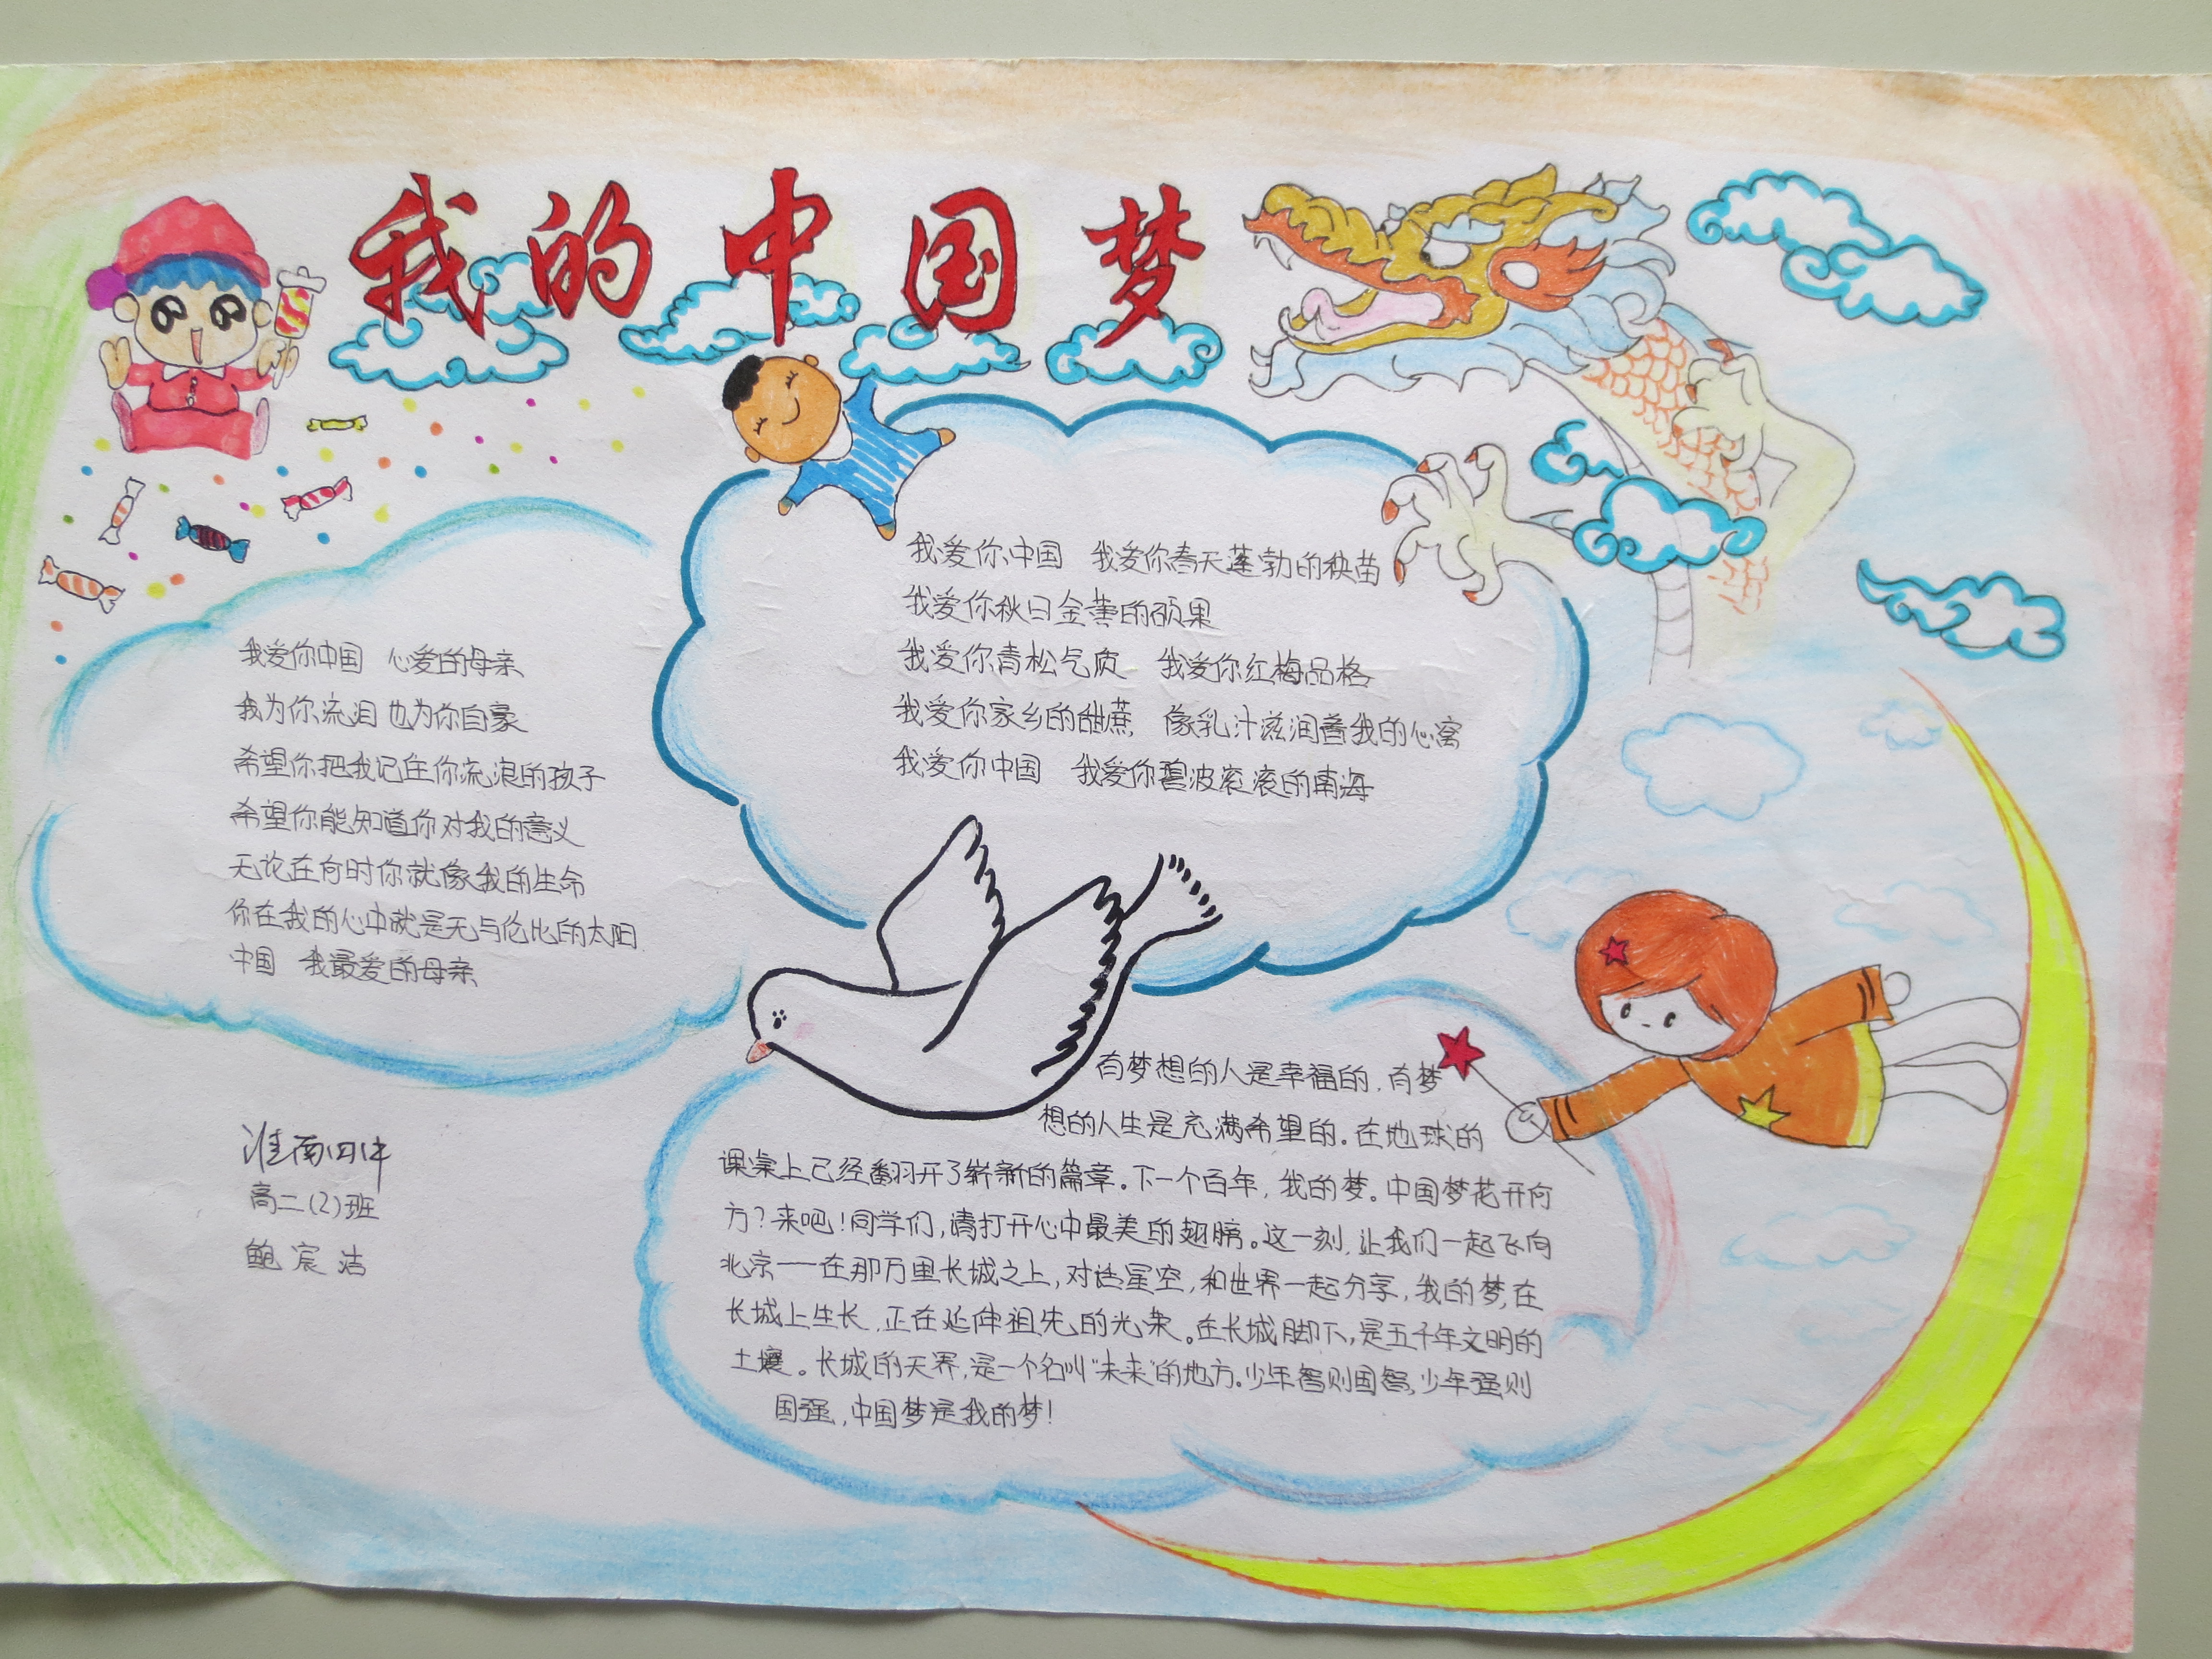 我的中国梦
我爱你中国 我爱你春天蓬勃的秧苗
我爱你秋日金黄的硕果
我爱你青松气质 我爱你红梅品格
我爱你家乡的甜蔗 像乳汁滋润着我的心窝
我爱你中国 我爱你碧波滚滚的南海
我爱你中国 心爱的母亲
我为你流泪 也为你自豪
希望你把我记住你流浪的孩子
希望你能知道你对我的意义
无论在何时你就像我的生命
你在我的心中就是无与伦比的太阳
中国 我最爱的母亲
有梦想的人是幸福的,有梦
想的人生是充满希望的。在地球的
课桌上已经翻开了崭新的篇章。下一个百年,我的梦。中国梦花开何
方?来吧!同学们,请打开心中最美的翅膀。这一刻,让我们一起飞向
北京——在那万里长城之上,对话星空,和世界一起分享,我的梦,在
长城上生长,正在延伸祖先的光荣。在长城脚下,是五千年文明的
土壤。长城的天界,是一个名叫“未来”的地方。少年智则国智,少年强则
国强,中国梦是我的梦!
淮南四中
高二(2)班
鲍宸洁